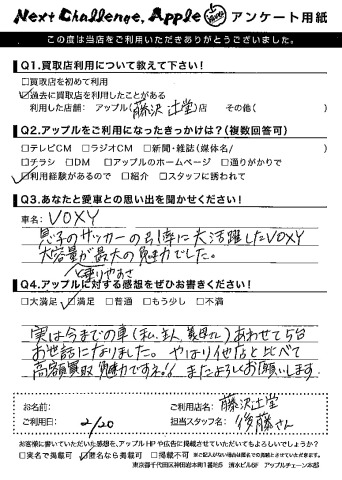 Next Challenge, Apple アンケート用紙
この度は当店をご利用いただきありがとうございました。
Q1.買取店利用について教えて下さい!
□買取店を初めて利用
☑過去に買取店を利用したことがある
利用した店舗: アップル(藤沢辻堂)店 その他( )
Q2.アップルをご利用になったきっかけは?(複数回答可)
□テレビCM □ラジオCM □新聞・雑誌(媒体名/ )
□チラシ □DM □アップルのホームページ □通りがかりで
☑利用経験があるので □紹介 □スタッフに誘われて
Q3.あなたと愛車との思い出を聞かせてください!
車名: VOXY
息子のサッカーの引率に大活躍したVOXY
大容量が最大の魅力でした。
と乗りやすさ
Q4.アップルに対する感想をぜひお書きください!
□大満足 ☑満足 □普通 □もう少し □不満
実は今までの車(私、主人、義母さん)あわせて5台
お世話になりました。やはり他店と比べて
高額買取 魅力ですネ!! またよろしくお願いします
お名前: ご利用店名: 藤沢辻堂
ご利用日: 2/20 担当スタッフ名: 後藤さん
お客様に書いていただいた感想を、アップルHPや広告に掲載させていただいてもよろしいでしょうか?
□実名で掲載可 ☑匿名なら掲載可 □掲載不可 ※ご記入がない場合は匿名での掲載とさせていただきます。
東京都千代田区神田岩本町1番地5 清水ビル5F アップルチェーン本部